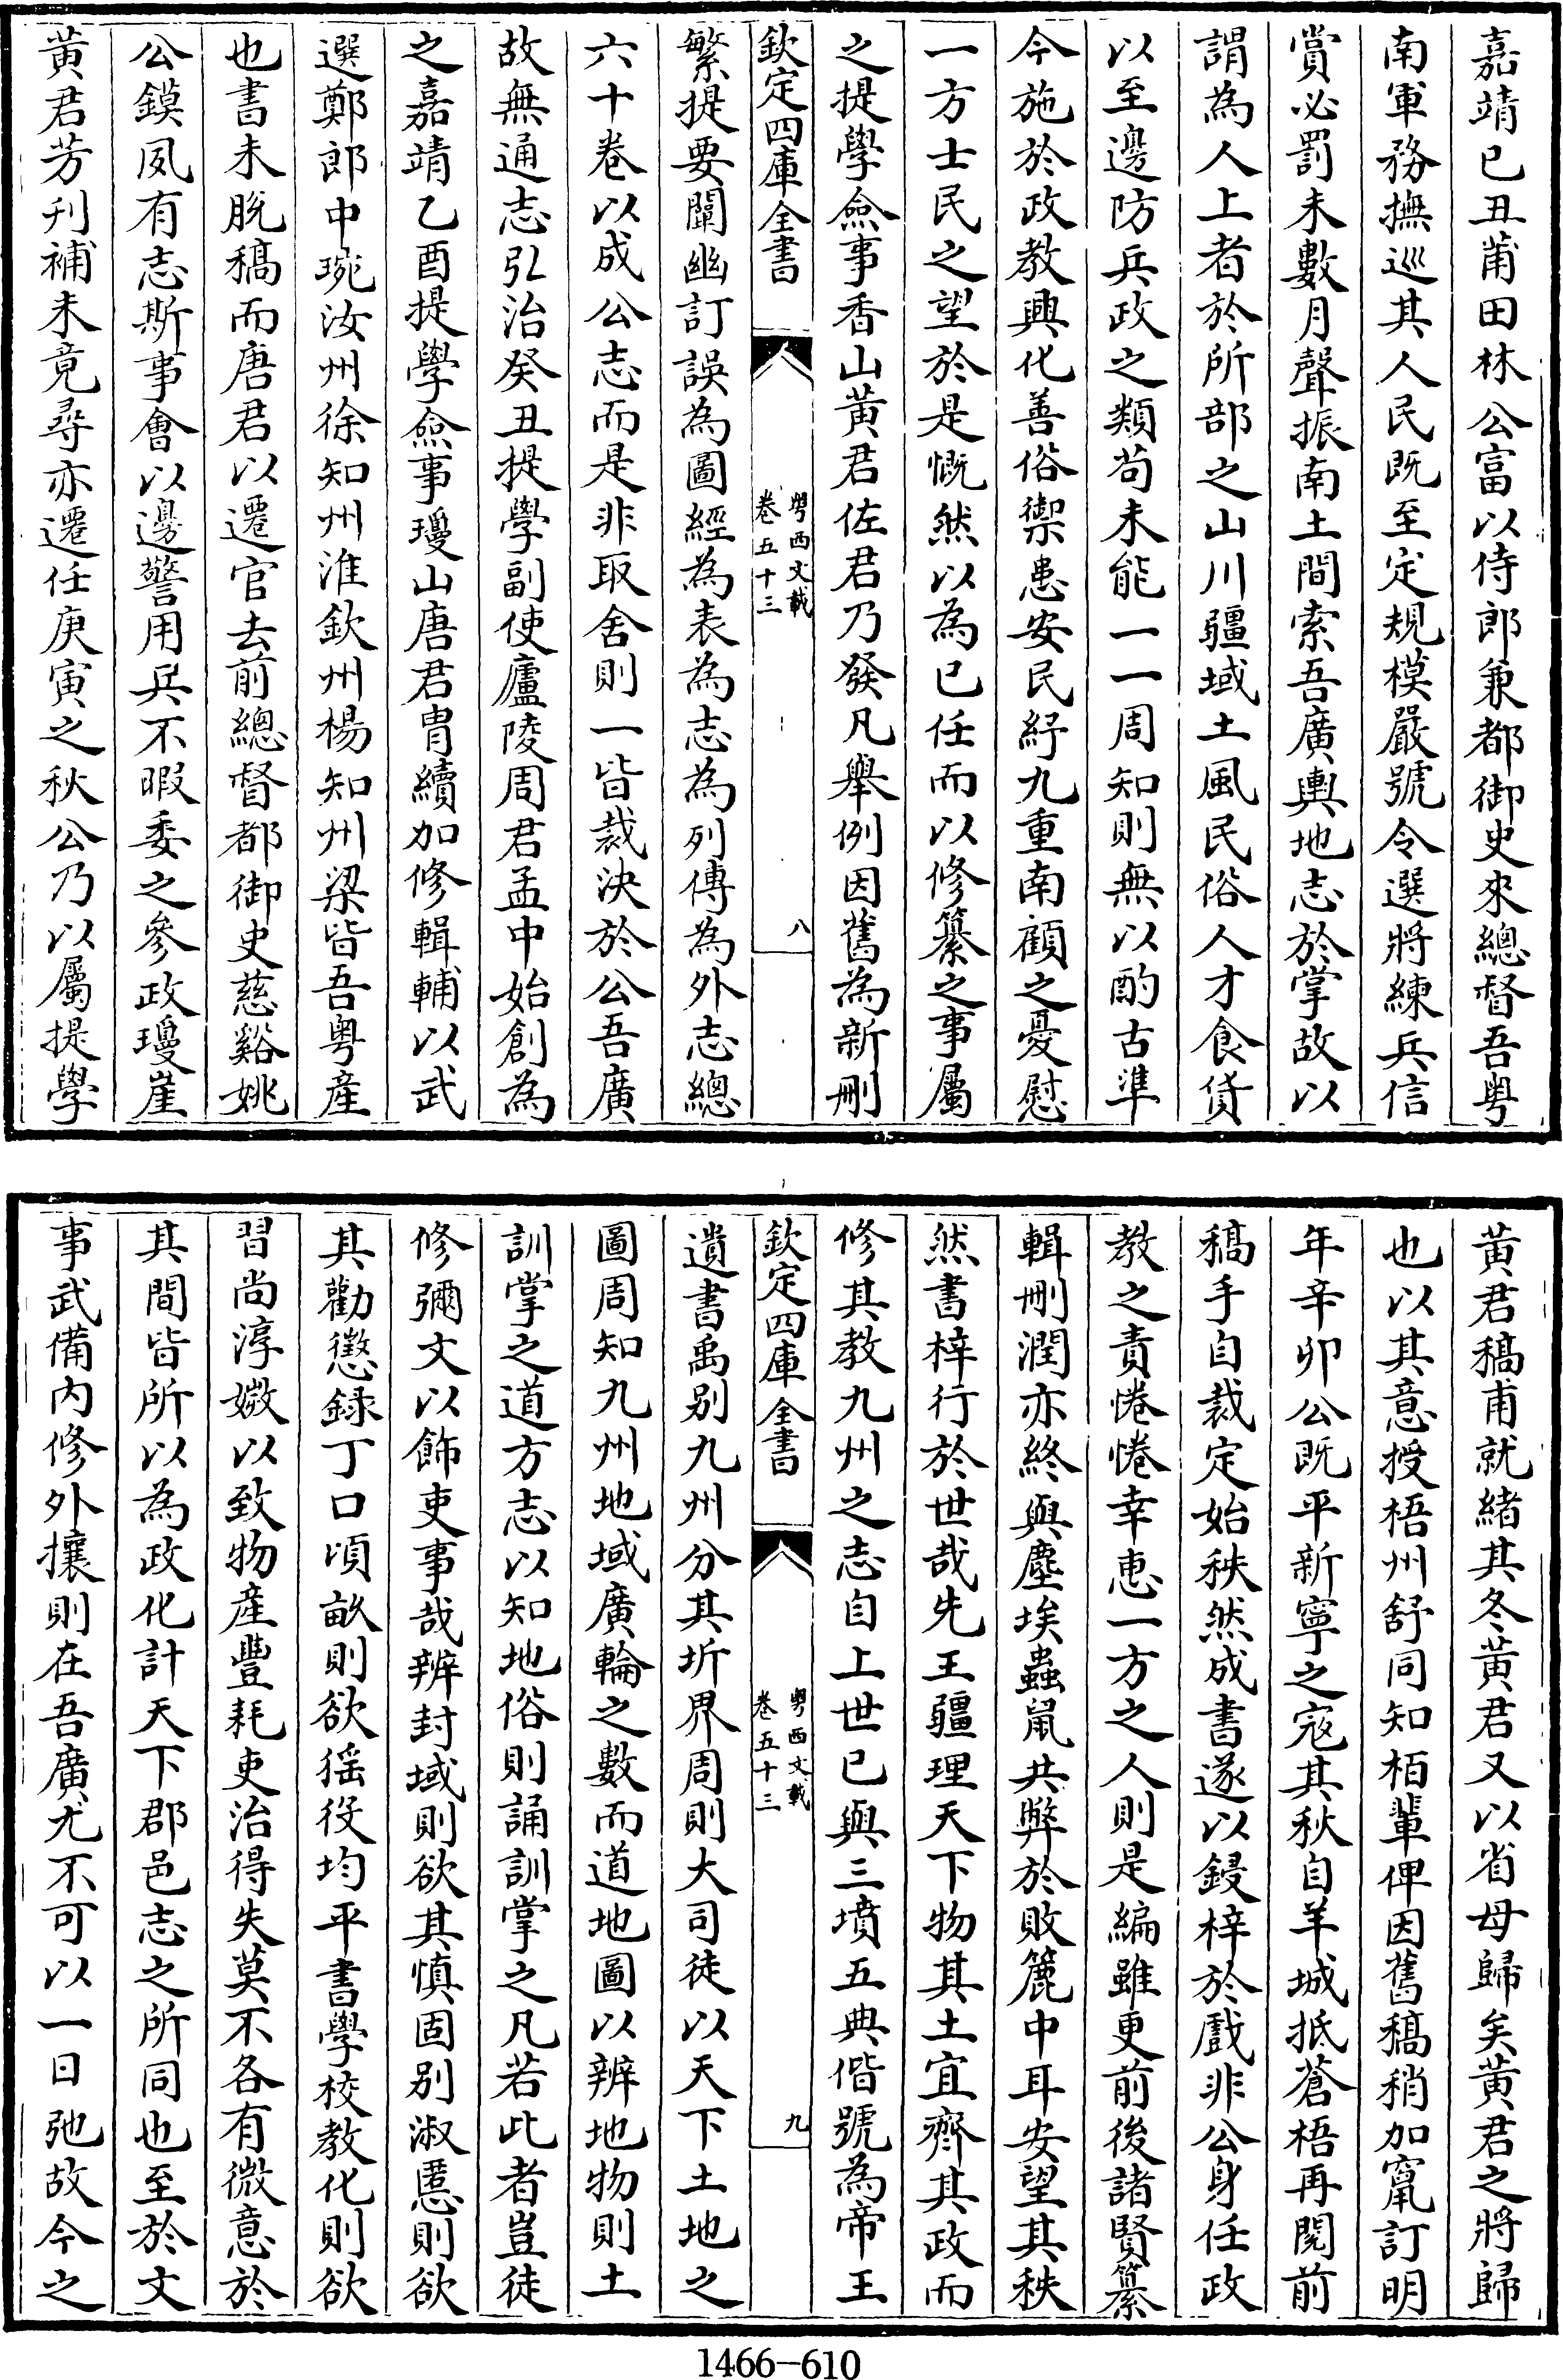 嘉靖己丑莆田林公富以侍郎兼都御史來總督吾粵
南軍務撫巡其人民既至定規模嚴號令選將練兵信
賞必罰未數月聲振南土間索吾廣輿地志於掌故以
謂為人上者於所部之山川疆域土風民俗人才食貨
以至邊防兵政之類茍未能一一周知則無以酌古準
今施於政教興化善俗禦患安民紓九重南顧之憂慰
一方士民之望於是慨然以為已任而以修纂之事屬
之提學僉事香山黄君佐君乃發凡舉例因舊為新刪
欽定四庫全書
粵西文載
卷五十三
八
繁提要闡幽訂誤為圖經為表為志為列傳為外志總
六十卷以成公志而是非取舍則一皆裁決於公吾廣
故無通志弘治癸丑提學副使廬陵周君孟中始創為
之嘉靖乙酉提學僉事瓊山唐君胄續加修輯輔以武
選鄭郎中琬汝州徐知州淮欽州楊知州梁皆吾粵產
也書未脫稿而唐君以遷官去前總督都御史慈谿姚
公鏌夙有志斯事會以邊警用兵不暇委之參政瓊崖
黄君芳刋補未竟尋亦遷任庚寅之秋公乃以屬提學
黄君稿甫就緒其冬黄君又以省母歸矣黄君之將歸
也以其意授梧州舒同知栢輩俾因舊稿稍加竄訂明
年辛卯公既平新寧之宼其秋自羊城抵蒼梧再閱前
稿手自裁定始秩然成書遂以鋟梓於戲非公身任政
教之責惓惓幸惠一方之人則是編雖更前後諸賢纂
輯刪潤亦終與塵埃蟲鼠共弊於敗簏中耳安望其秩
然書梓行於世哉先王疆理天下物其土宜齊其政而
修其教九州之志自上世已與三墳五典偕號為帝王
欽定四庫全書
粵西文載
卷五十三
九
遺書禹别九州分其圻界周則大司徒以天下土地之
圖周知九州地域廣輪之數而道地圖以辨地物則土
訓掌之道方志以知地俗則誦訓掌之凡若此者豈徒
修彌文以飾吏事哉辨封域則欲其慎固别淑慝則欲
其勸懲録丁口頃畝則欲徭役均平書學校教化則欲
習尚淳媺以致物產豐耗吏治得失莫不各有微意於
其間皆所以為政化計天下郡邑志之所同也至於文
事武備内修外攘則在吾廣尤不可以一日弛故今之
1466-610